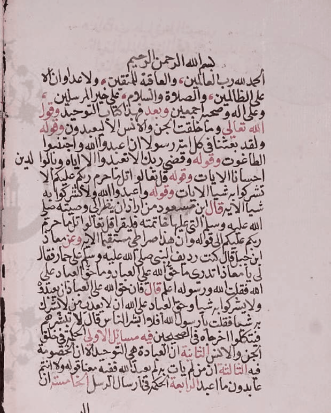 بسم الله الرحمن الرحيم
الحمد لله رب العالمين والعاقبة للمتقين ولا عدوان الا
على الظالمين والصلاة والسلام على خير المرسلين
وعلى اله وصحبه اجمعين وبعد فهذا كتاب التوحيد وقول
الله تعالى وما خلقت الجن والانس الا ليعبدون وقوله
ولقد بعثنا في كل امة رسولا ان اعبدوا الله واجتنبوا
الطاغوت وقوله وقضى ربك الا تعبدوا الا اياه وبالوالدين
احسانا الايات وقوله قل تعالوا اتل ما حرم ربكم عليكم الا
تشركوا به شيا الايات وقوله واعبدوا الله ولا تشركوا به
شيا الاية قال بن مسعود من اراد ان ينظر الى وصية محمد صلى
الله عليه وسلم التي عليها خاتمه فليقرا قل تعالوا اتل ما حرم
ربكم عليكم الى قوله وان هذا صراطي مستقيما الاية وعن معاذ
ابن جبل قال كنت رديف النبي صلى الله عليه وسلم على حمار فقال
لي يا معاذ اتدري ما حق الله على العباد وما حق العباد على
الله فقلت الله ورسوله اعلم قال فان حق الله على العباد ان يعبدوه
ولا يشركوا به شيا وحق العباد على الله ان لا يعذب من لا يشرك
به شيا فقلت يا رسول الله افلا ابشر الناس قال لا تبشرهم
فيتكلوا اخرجاه في الصحيحين فيه مسائل الاولى الحكمة في خلق
الجن والانس الثانية ان العبادة هي التوحيد لان الخصومة
فيه الثالثة ان من لم يات به لم يعبد الله ففيه معنى قوله ولا انتم
عابدون ما اعبد الرابعة الحكمة في ارسال الرسل الخامسة ان